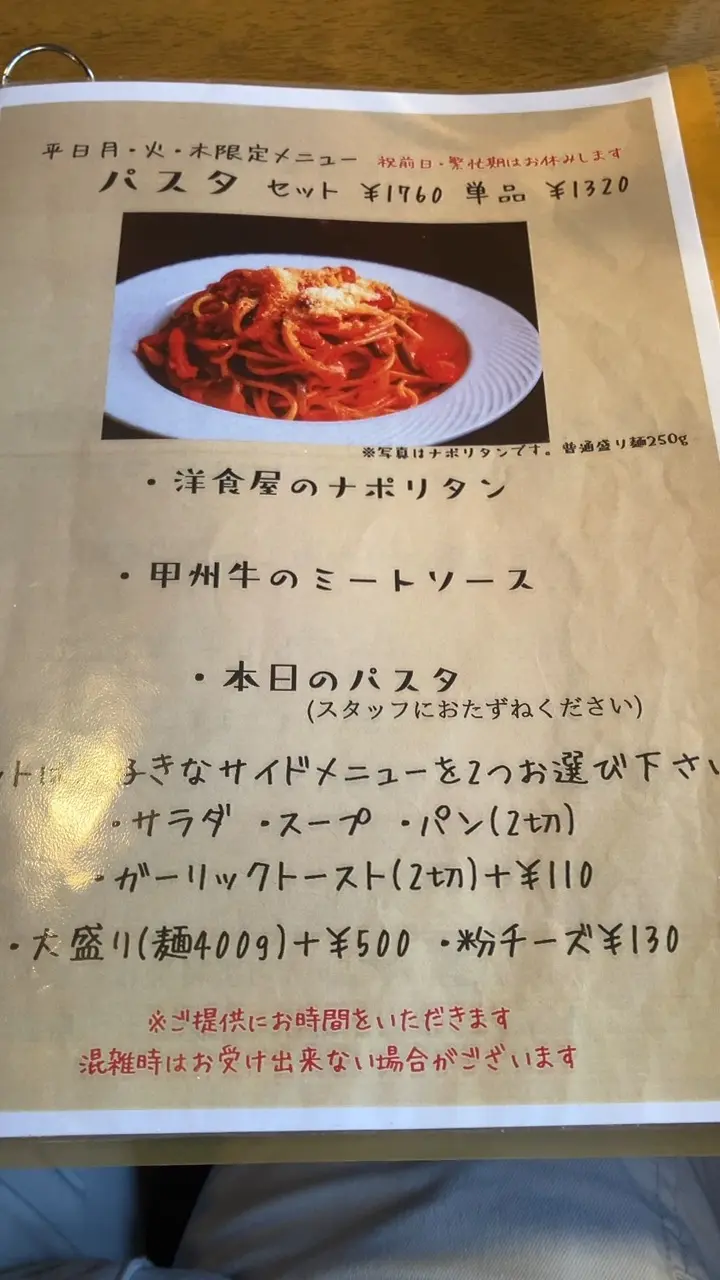 平日月・火・木限定メニュー 祝前日・繁忙期はお休みします
パスタ セット ¥1760 単品 ¥1320
※写真はナポリタンです。普通盛り麺250g
・洋食屋のナポリタン
・甲州牛のミートソース
・本日のパスタ
(スタッフにおたずねください)
きなサイドメニューを2つお選び下さい
・サラダ ・スープ ・パン(2切)
・ガーリックトースト(2切)+¥110
・大盛り(麺400g)+¥500 ・粉チーズ¥130
※ご提供にお時間をいただきます
混雑時はお受け出来ない場合がございます